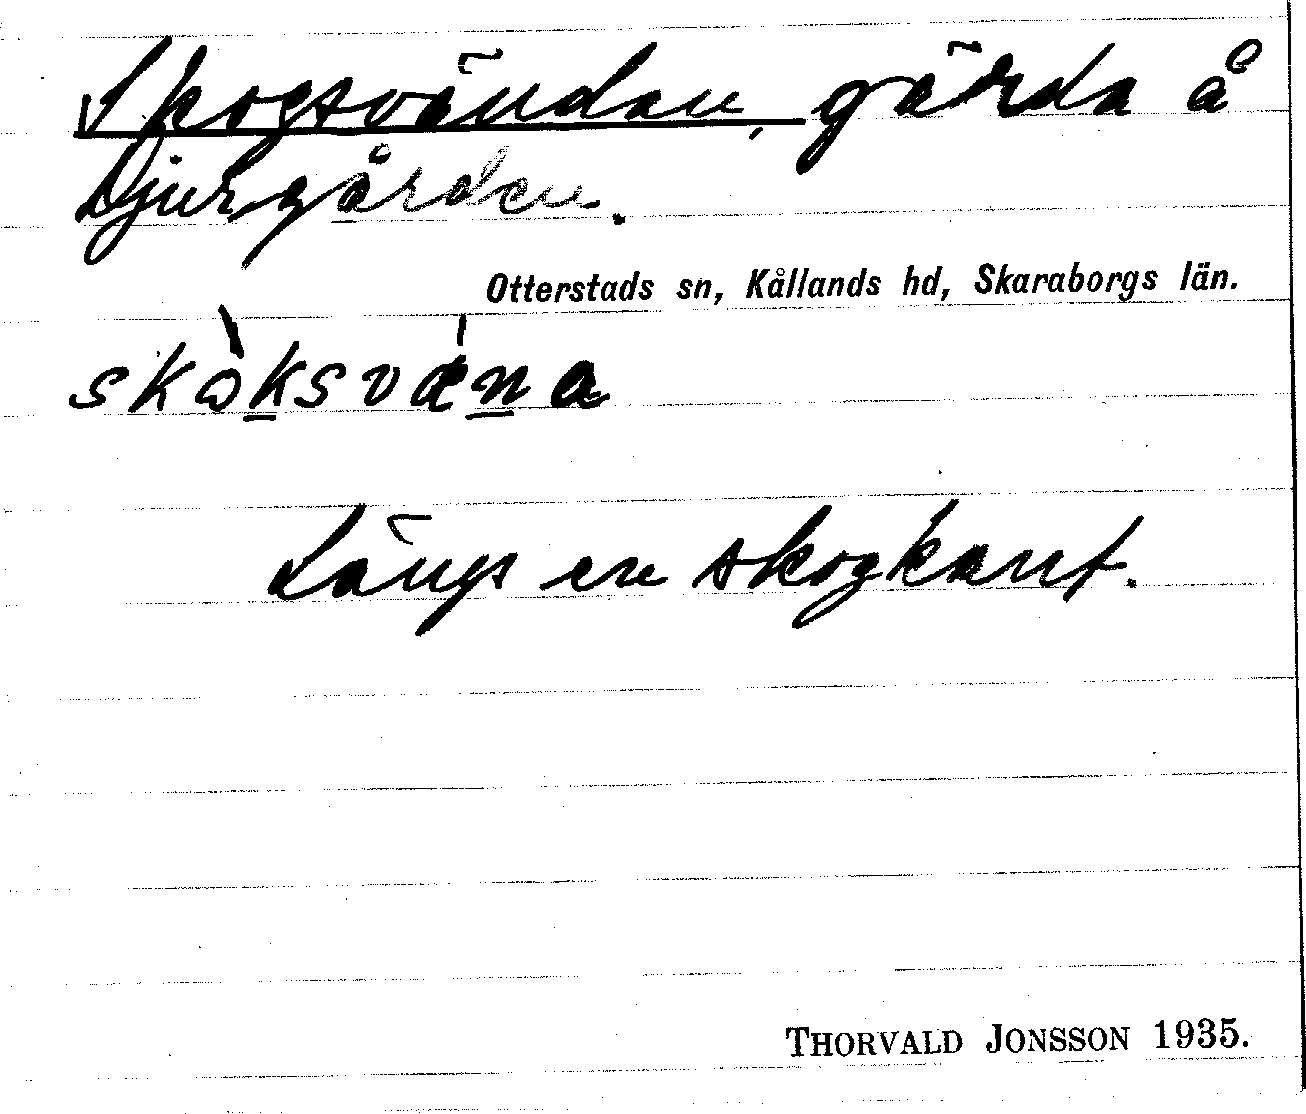 Skogsvändan, gärda å
Djurgården.
Otterstads sn, Kållands hd, Skaraborgs län.
skòksvǽna
Längs en skogkant.
THORVALD JONSSON 1935.